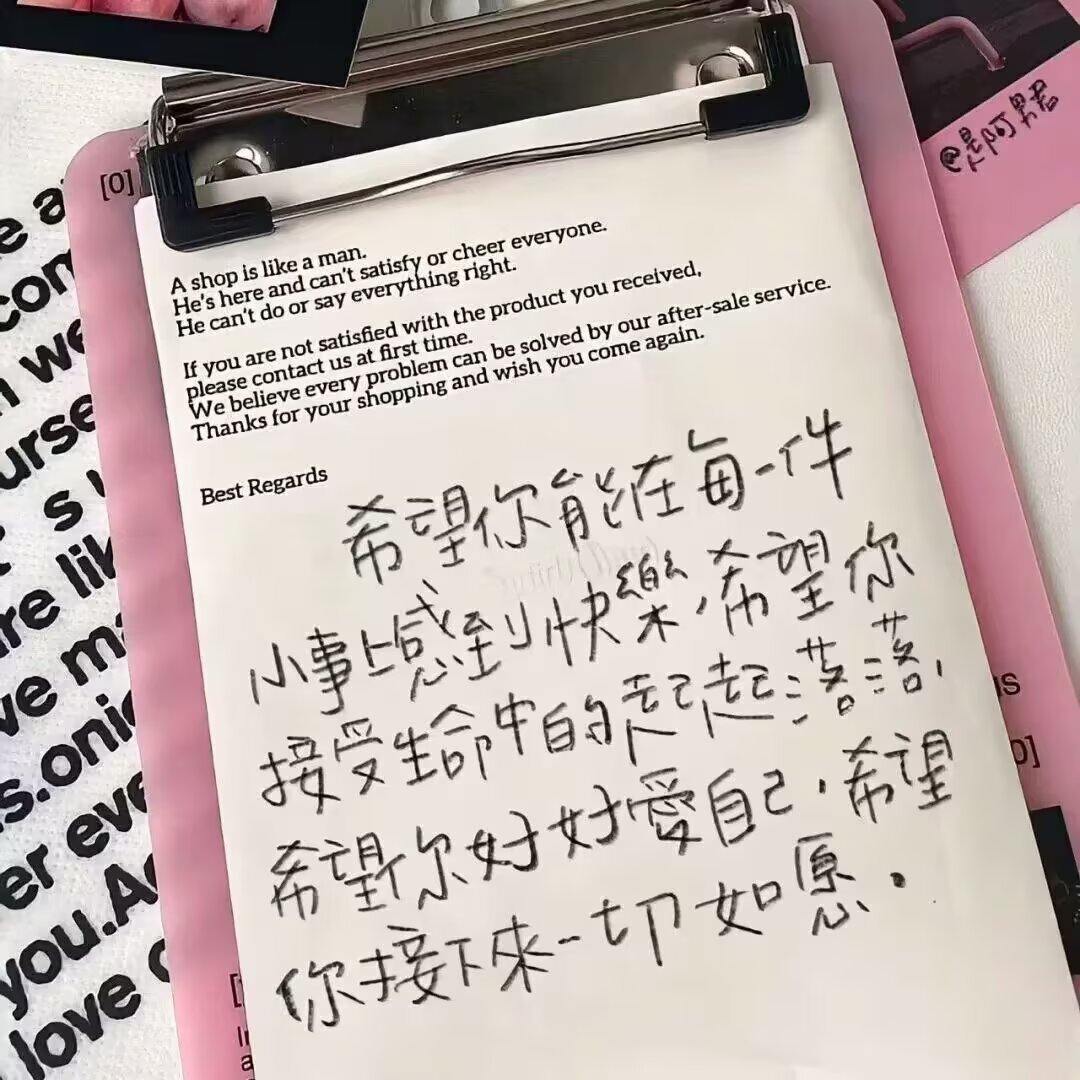 @是阿男君
[0]
A shop is like a man.
He's here and can't satisfy or cheer everyone.
He can't do or say everything right.
If you are not satisfied with the product you received,
please contact us at first time.
We believe every problem can be solved by our after-sale service.
Thanks for your shopping and wish you come again.
Best Regards
希望你能在每一件
小事上感到快樂,希望你
接受生命中的起起落落,
希望你好好愛自己,希望
你接下來一切如愿.
you.
love